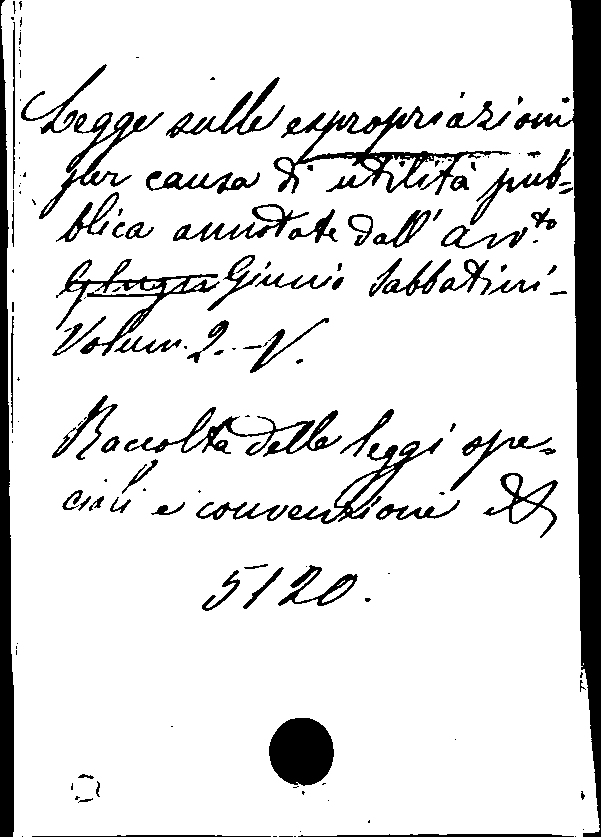 Legge sulle espropriazioni
per causa di utilità pub-
blica annotate dall' avv.to
Giunio Sabbatini -
Volum. 2. - V.
Raccolta delle leggi spe-
ciali e convenzioni &
5120.